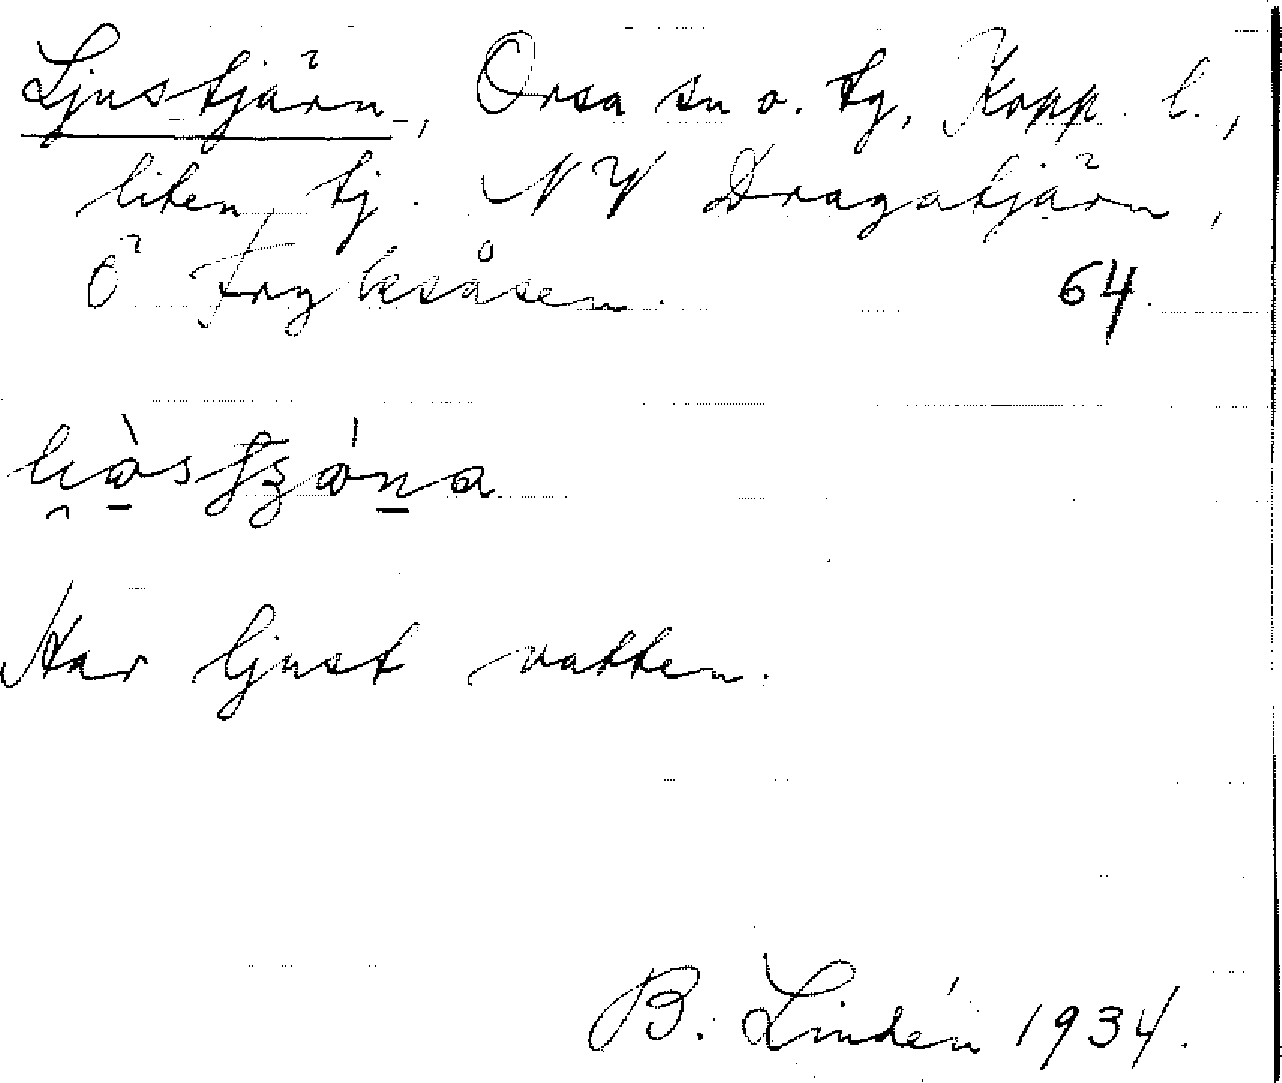 Ljustjärn, Orsa sn o. tg, Kopp. l.,
liten tj. NV Dragatjärn,
Ö Fryksåsen. 64.
Har ljust vatten.
B. Lindén 1934.